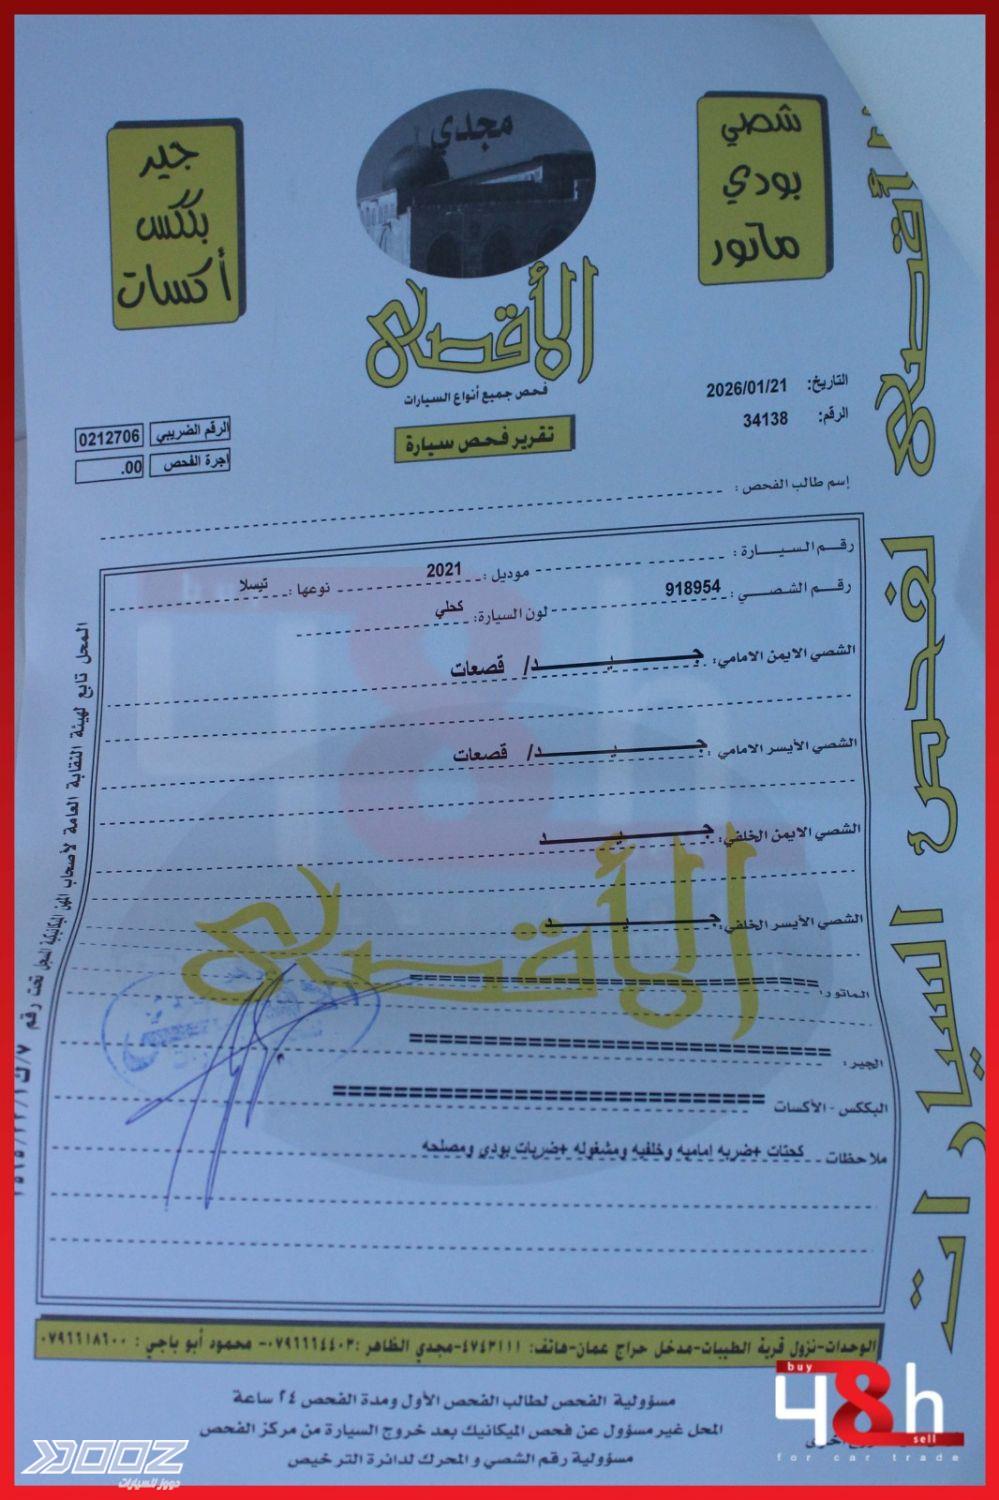 شصي
بودي
ماتور
مجدي
جير
بكس
أكسات
الأقصى
فحص جميع أنواع السيارات
تقرير فحص سيارة
التاريخ: 2026/01/21
الرقم: 34138
الرقم الضريبي 0212706
اجرة الفحص .00
إسم طالب الفحص :
رقم السيارة : موديل : 2021 نوعها : تيسلا
رقم الشصي : 918954 لون السيارة: كحلي
الشصي الايمن الامامي: جيد/ قصعات
الشصي الأيسر الامامي : جيد/ قصعات
الشصي الايمن الخلفي: جيد
الشصي الأيسر الخلفي: جيد
الماتور: ==============================
الجير : ==============================
البككس - الأكسات ==============================
ملاحظات كحتات +ضربه اماميه وخلفيه ومشغوله +ضربات بودي ومصلحه
الأقصى
الأقصى لفحص السيارات
المحل تابع لهيئة النقابة العامة لأصحاب المهن الميكانيكية المسجل تحت رقم
الوحدات-نزول قرية الطيبات-مدخل حراج عمان-هاتف: ٤٧٤٣١١١-مجدي الظاهر :٠٧٩٦٦٦٤٤٠٣- محمود أبو باجي : ٠٧٩٦٦١٨٦٠٠
مسؤولية الفحص لطالب الفحص الأول ومدة الفحص ٢٤ ساعة
المحل غير مسؤول عن فحص الميكانيك بعد خروج السيارة من مركز الفحص
مسؤولية رقم الشصي و المحرك لدائرة الترخيص
buy
48h
sell
for car trade
DOOZ
دووز للسيارات